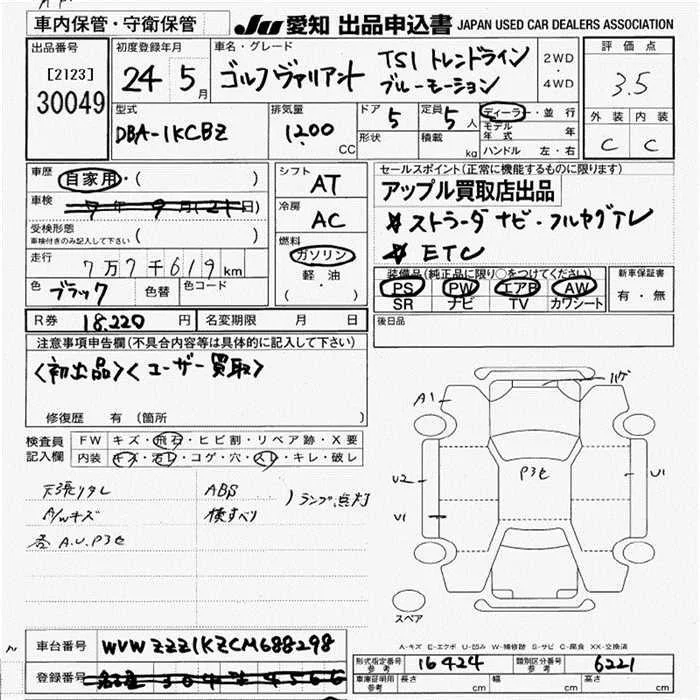 車内保管・守衛保管
JU 愛知 出品申込書 JAPAN USED CAR DEALERS ASSOCIATION
出品番号
[2123]
30049
初度登録年月
24 5月
車名・グレード
ゴルフヴァリアント
TSI トレンドライン
ブルーモーション
2WD
・
4WD
評価点
3.5
外装 内装
C C
型式
DBA-1KCBZ
排気量
1200 CC
ドア 5
定員 5人
形状
積載 kg
ディーラー・並行
モデル年式 年
ハンドル 左・右
車歴 自家用・( )
車検 7年9月(21日)
受検形態
車検付きのみ記入して下さい ( )
走行 7万7千619km
色 ブラック 色替 色コード
シフト
AT
冷房
AC
燃料
ガソリン
軽・油
( )
セールスポイント(正常に機能するものに限ります)
アップル買取店出品
☆ストラーダナビ・フルセグTV
☆ETC
装備品(純正品に限り○をつけてください)
PS PW エアB AW
SR ナビ TV カワシート
新車保証書
有・無
R券 18,220円 名変期限 月 日
後日品
注意事項申告欄(不具合内容等は具体的に記入して下さい)
<初出品><ユーザー買取>
修復歴 有 (箇所
検査員
記入欄
FW キズ・飛石・ヒビ割・リペア跡・X要
内装 キズ・汚レ・コゲ・穴・スレ・キレ・破レ
天張りタレ
A/Wキズ
各 A.U.P3セ
ABS
横すべり
)ランプ点灯
A1
ハゲ
P3セ
U2
U1
U1
スペア
A-キズ E-エクボ U-凹み W-補修跡 S-サビ C-腐食 XX-交換済
車台番号 WVWZZZ1KZCM688298
登録番号
型式指定番号
参考
16424
類別区分番号
参考
6221
車庫証明用
参考
長さ cm 幅 cm 高さ cm